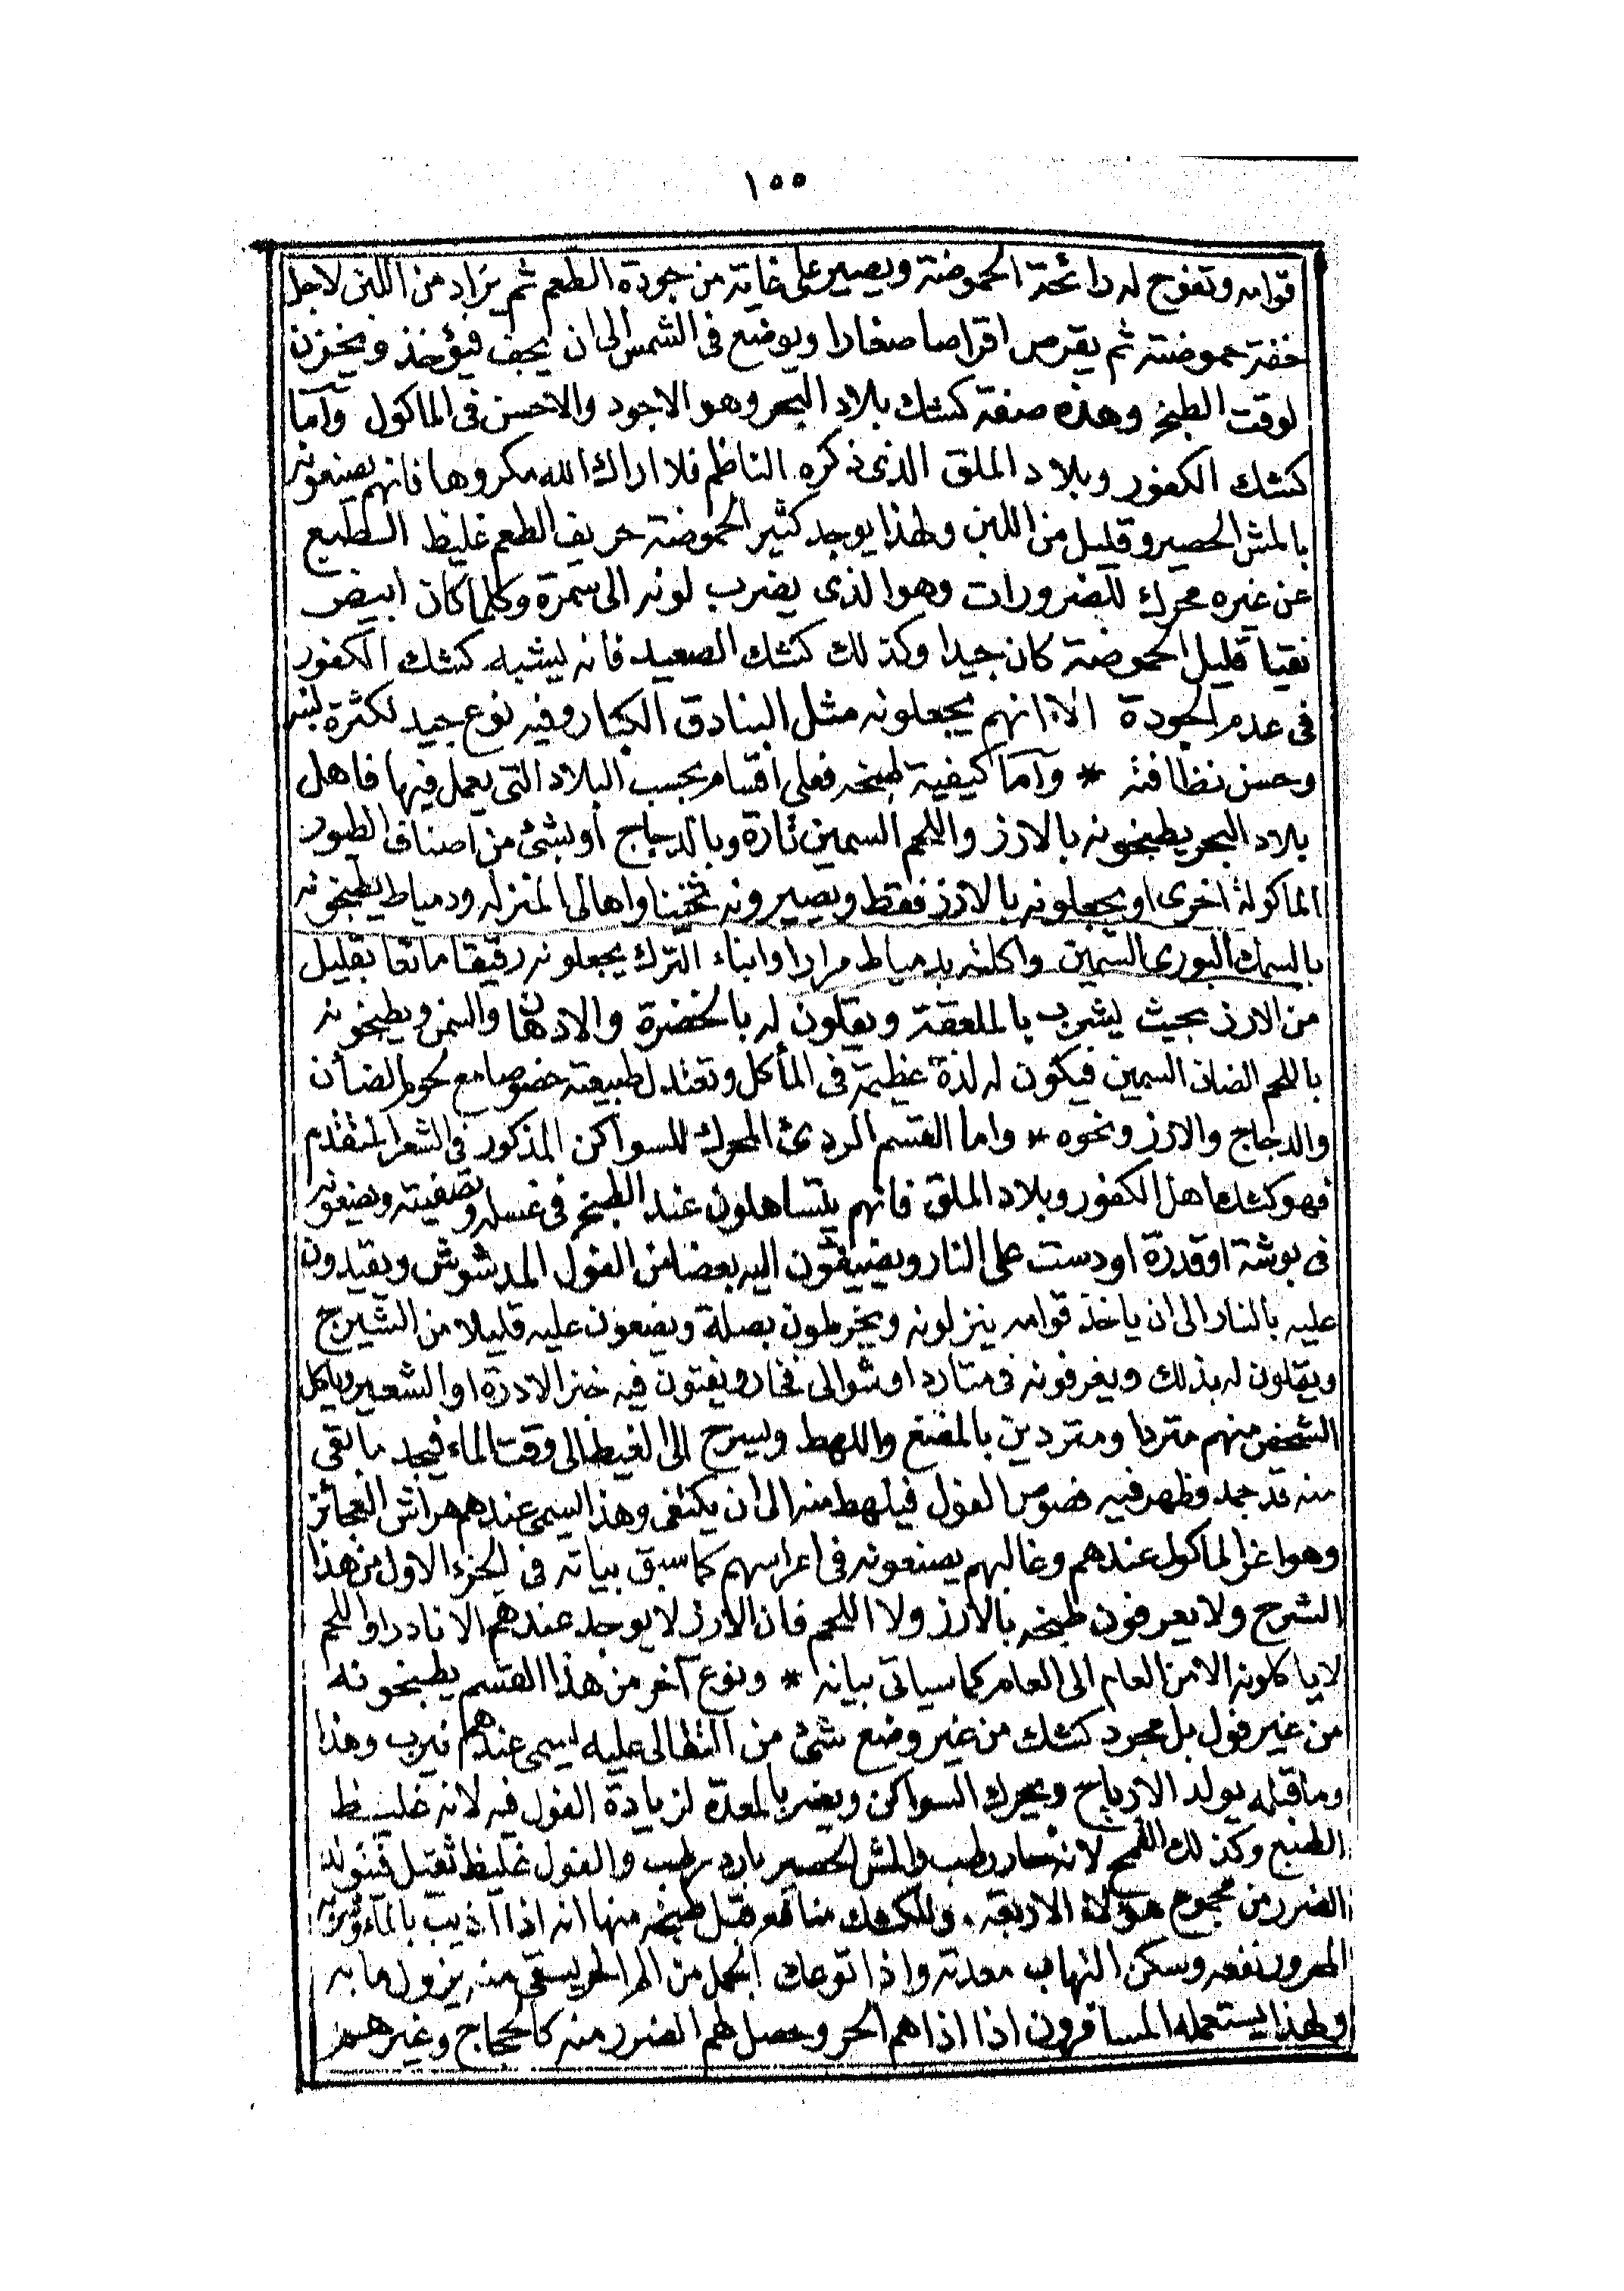 ١٥٥
قوامه وتفوح له رائحة الحموضة ويصير على غاية من جودة الطعم ثم يزاد من اللبن لاجل
خفة حموضته ثم يقرص اقراصا صغارا ويوضع فى الشمس الى ان يجف فيؤخذ ويخزن
لوقت الطبخ وهذه صفة كشك بلاد البحر وهو الاجود والاحسن فى الماكول وآما
كشك الكفور وبلاد الملق الذى ذكره الناظم فلا اراك الله مكروها فانهم يصنعونه
بالمش الحصير وقليل من اللبن ولهذا يوجد كثير الحموضة حريف الطعم غليظ الطبع
عن غيره محرك للضرورات وهو الذى يضرب لونه الى سمرة وكلما كان ابيض
نقيا قليل الحموضة كان جيدا وكذلك كشك الصعيد فانه يشبه كشك الكفور
فى عدم الجودة الا انهم يجعلونه مثل البنادق الكبار وفيه نوع جيد لكثرة لبنه
وحسن نظافته * وآما كيفية طبخه فعلى اقسام بحسب البلاد التى يعمل فيها فاهل
بلاد البحر يطبخونه بالارز واللحم السمين تارة وبالدجاج او بشئ من اصناف الطيور
الماكولة اخرى او يجعلونه بالارز فقط ويصيرونه ثخينا واهالى المنزله ودمياط يطبخونه
بالسمك البورى السمين واكلته بدمياط مرارا وابناء الترك يجعلونه رقيقا مائعا بقليل
من الارز بحيث يشرب بالملعقة ويقلون له بالخضرة والادهان والسمن ويطبخونه
باللحم الضان السمين فيكون له لذة عظيمة فى المأكل وتعتدل طبيعته خصوصا مع لحوم الضأن
والدجاج والارز ونحوه * واما القسم الردئ المحرك للسواكن المذكور فى الشعر المتقدم
فهو كشك اهل الكفور وبلاد الملق فانهم يتساهلون عند الطبخ فى غسله وتصفيته ويضعونه
فى بوشة او قدرة او دست على النار ويضيفون اليه بعضا من الفول المدشوش ويقيدون
عليه بالنار الى ان ياخذ قوامه ينزلونه ويخرطون بصلة ويضعون عليه قليلا من الشيرج
ويقلون له بذلك ويغرفونه فى متارد او شوالى فخار ويفتون فيه خبز الادرة او الشعير وياكل
الشخص منهم متردا ومتردين بالمضغ واللهط ويسرح الى الغيط الى وقت الماء فيجد ما بقى
منه قد جمد وظهر فيه فصوص الفول فيلهط منه الى ان يكتفى وهذا يسمى عندهم هراش العجائز
وهو اعز الماكول عندهم وغالبهم يصنعونه فى اعراسهم كما سبق بيانه فى الجزء الاول من هذا
الشرح ولا يعرفون طبخه بالارز ولا اللحم فان الارز لا يوجد عندهم الا نادرا واللحم
لا ياكلونه الا من العام الى العام كما سياتى بيانه * ونوع آخر من هذا القسم يطبخونه
من غير فول بل مجرد كشك من غير وضع شئ من التقالى عليه يسمى عندهم نيرب وهذا
وما قبله يولد الارياح ويحرك السواكن ويضر بالمعدة لزيادة الفول فيه لانه غليظ
الطبع وكذلك القمح لانه حار رطب والمش الحصير بارد رطب والفول غليظ ثقيل فتولد
الضرر من مجموع هؤلاء الاربعة وللكشك منافع قبل طبخه منها انه اذا آذيب بالماء وشربه
المحرور نفعه وسكن التهاب معدته واذا توعك الجمل من الم الحر يسقى منه يزول ما به
ولهذا يستعمله المسافرون اذا اذاهم الحر وحصل لهم الضرر منه كالحجاج وغيرهم